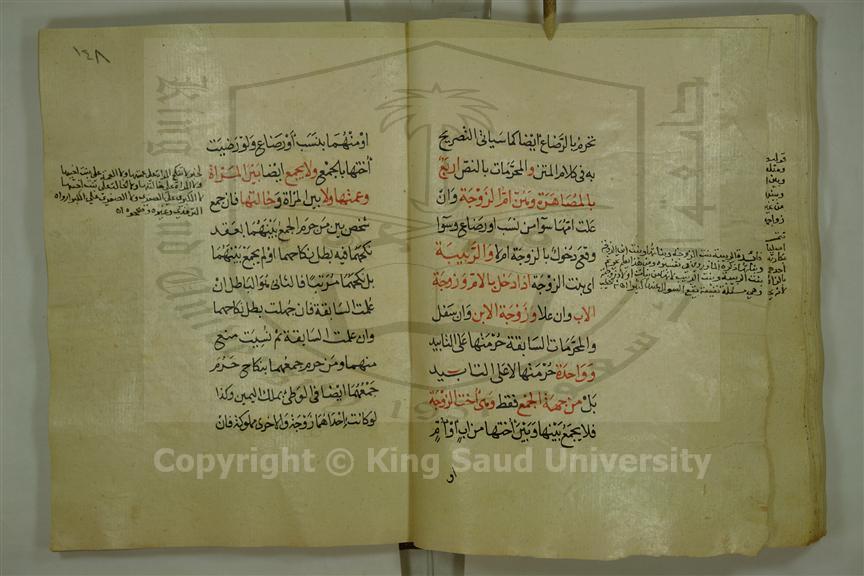 تحرم بالرضاع ايضا كما سياتى التصريح
به فى كلام المتن والمحرمات بالنص اربع
بالمصاهرة وهن ام الزوجة وان
علت امها سوا من نسب او رضاع وسوا
وقع دخول بالزوجة ام لا والربيبة
اى بنت الزوجة اذا دخل بالام وزوجة
الاب وان علا وزوجة الابن وان سفل
والمحرمات السابقة حرمتها على التابيد
وواحدة حرمتها لا على التابيد
بل من جهة الجمع فقط وهى اخت الزوجة
فلا يجمع بينها وبين اختها من اب او ام
او
١٤٨
او منهما بنسب او رضاع ولو رضيت
اختها بالجمع ولا يجمع ايضا بين المراة
وعمتها ولا بين المراة وخالتها فان جمع
شخص بين من حرم الجمع بينهما بعقد
نكحهما فيه بطل نكاحهما او لم يجمع بينهما
بل نكحهما مرتبا فالثانى هو الباطل ان
علمت السابقة فان جهلت بطل نكاحهما
وان علمت السابقة ثم نسيت منع
منهما ومن حرم جمعهما بنكاح حرم
جمعهما ايضا فى الوطئ بملك اليمين وكذا
لو كانت احداهما زوجة والاخرى مملوكة فان
Copyright © King Saud University